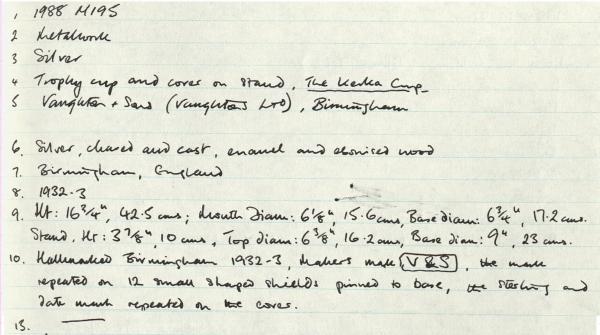 1 1988 M195
2 Metalwork
3 Silver
4 Trophy cup and cover on stand, The Kerka Cup
5 Vaughton + Sons (Vaughtons Ltd), Birmingham
6. Silver, chased and cast, enamel and ebonised wood
7. Birmingham, England
8. 1932-3
9. Ht: 16 3/4", 42.5 cms; Mouth Diam: 6 1/8", 15.6 cms, Base diam: 6 3/4", 17.2 cms.
Stand, Ht: 3 7/8", 10 cms, Top diam: 6 3/8", 16.2 cms, Base diam: 9", 23 cms.
10. Hallmarked Birmingham 1932-3, Makers mark V&S, the mark
repeated on 12 small shaped shields pinned to base, the sterling and
date mark repeated on the cover.
13.